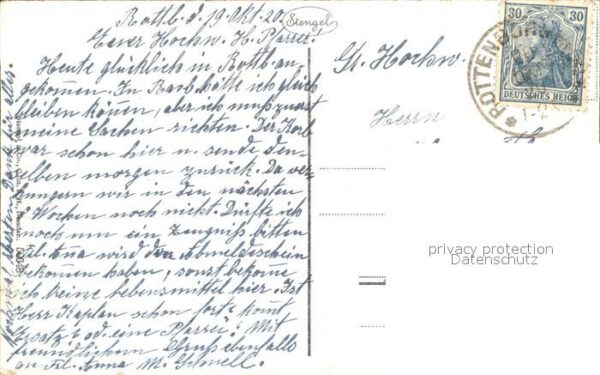 Rottb. d. 19. Okt. 20.
Euer Hochw. H. Pfarrer!
Heute glücklich in Rottb. an-
gekommen. In Rorb. hätte ich gleich
bleiben können, aber ich muß zuerst
meine Sachen richten. Der Korb
war schon hier u. sende den-
selben morgen zurück. Da ver-
hungern wir in den nächsten
8 Wochen noch nicht. Dürfte ich
noch um ein Zeugniß bitten
Frl. Anna wird den Abmeldeschein
bekommen haben, sonst bekome
ich keine Lebensmittel hier. Ist
Herr Kaplan schon fort? komt
Ersatz? od. eine Pfarrei? Mit
freundlichem Gruß ebenfalls
an Frl. Anna M. Schnell.
Dank für alles.
Stengel
Sr. Hochw.
Herrn
30 30
DEUTSCHES REICH
ROTTENBURG
privacy protection
Datenschutz